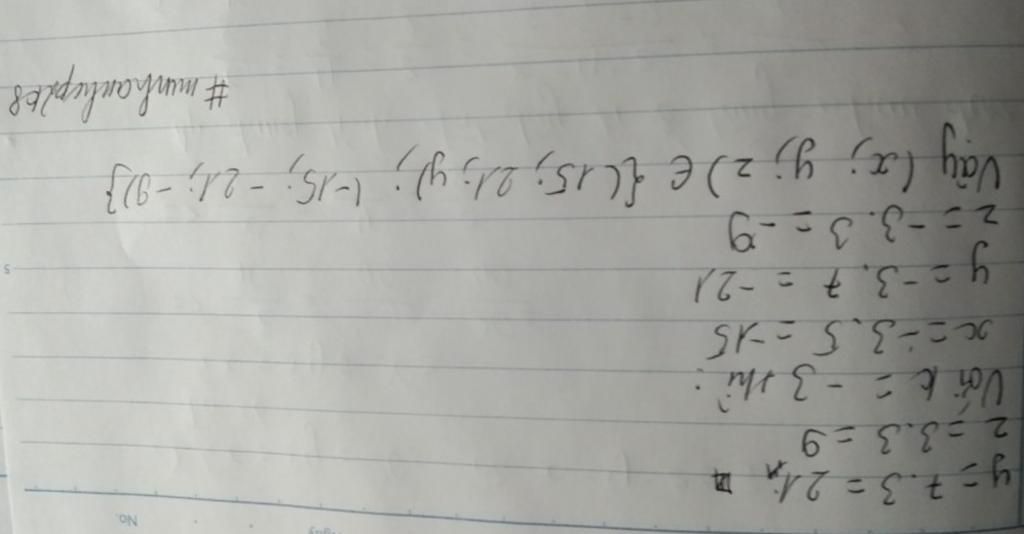 No.
y = 7.3 = 21
z = 3.3 = 9
Với k = -3 thì:
x = -3.5 = -15
y = -3.7 = -21
z = -3.3 = -9
Vậy (x; y; z) ∈ {(15; 21; y); (-15; -21; -9)}
5